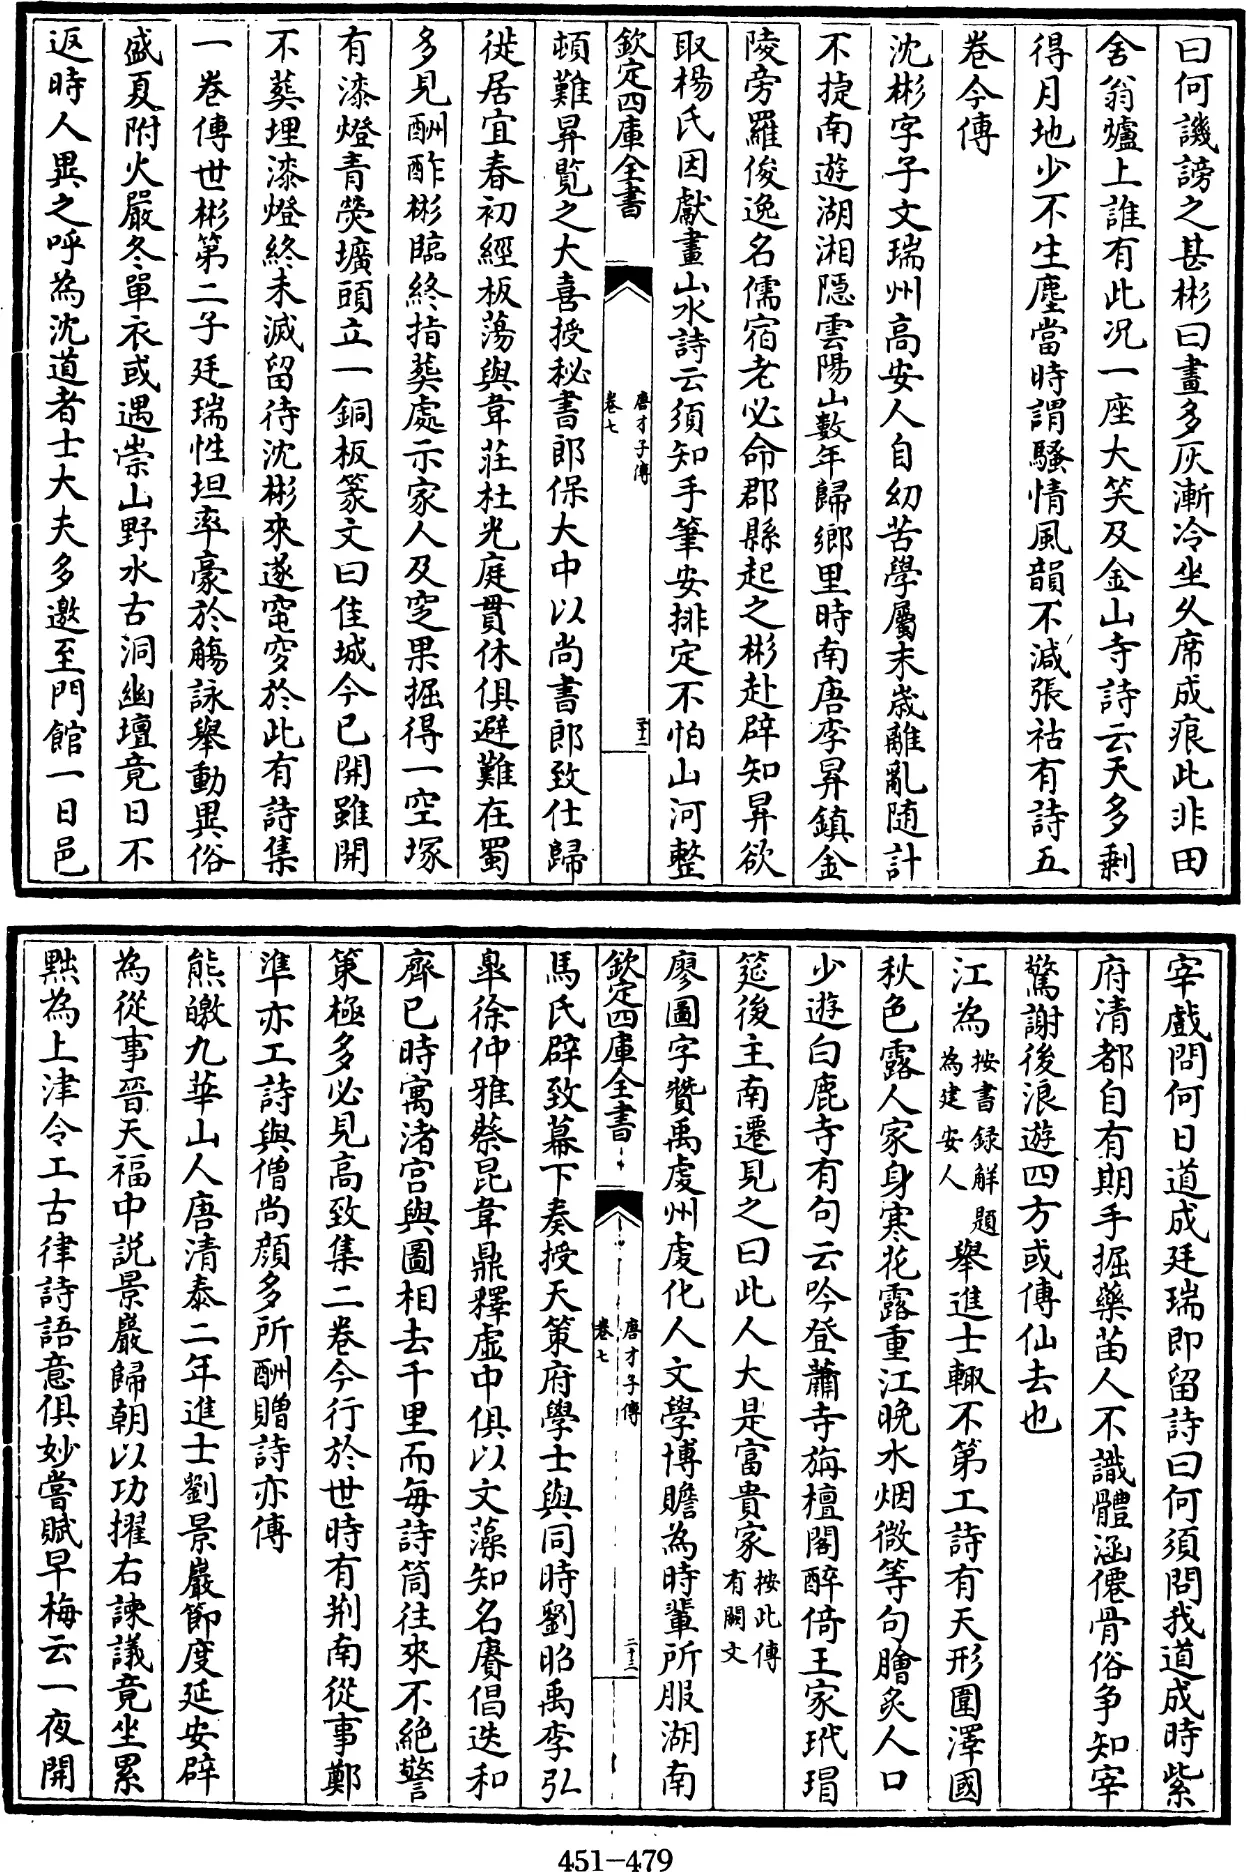 曰何譏謗之甚彬曰畫多灰漸冷坐久席成痕此非田
舍翁爐上誰有此况一座大笑及金山寺詩云天多剩
得月地少不生塵當時謂騷情風韻不減張祜有詩五
卷今傳
沈彬字子文瑞州高安人自幼苦學屬末歲離亂随計
不捷南遊湖湘隱雲陽山數年歸鄉里時南唐李昇鎮金
陵旁羅俊逸名儒宿老必命郡縣起之彬赴辟知昇欲
取楊氏因獻畫山水詩云須知手筆安排定不怕山河整
欽定四庫全書
唐才子傳
卷七
二十二
頓難昇覽之大喜授秘書郎保大中以尚書郎致仕歸
徙居宜春初經板蕩與韋莊杜光庭貫休俱避難在蜀
多見酬酢彬臨終指葬處示家人及窆果掘得一空塚
有漆燈青熒壙頭立一銅板篆文曰佳城今已開雖開
不葬埋漆燈終未滅留待沈彬來遂窀穸於此有詩集
一卷傳世彬第二子廷瑞性坦率豪於觴詠舉動異俗
盛夏附火嚴冬單衣或遇崇山野水古洞幽壇竟日不
返時人異之呼為沈道者士大夫多邀至門館一日邑
宰戲問何日道成廷瑞即留詩曰何須問我道成時紫
府清都自有期手掘藥苗人不識體涵僊骨俗争知宰
驚謝後浪遊四方或傳仙去也
江為按書録解題為建安人舉進士輙不第工詩有天形圍澤國
秋色露人家身寒花露重江晚水烟微等句膾炙人口
少遊白鹿寺有句云吟登蕭寺旃檀閣醉倚王家玳瑁
筵後主南遷見之曰此人大是富貴家按此傳有闕文
廖圖字贊禹虔州虔化人文學博贍為時輩所服湖南
欽定四庫全書
唐才子傳
卷七
二十三
馬氏辟致幕下奏授天策府學士與同時劉昭禹李弘
臯徐仲雅蔡昆韋鼎釋虛中俱以文藻知名賡倡迭和
齊已時寓渚宮與圖相去千里而每詩筒往來不絕警
策極多必見高致集二卷今行於世時有荆南從事鄭
準亦工詩與僧尚顔多所酬贈詩亦傳
熊皦九華山人唐清泰二年進士劉景巖節度延安辟
為從事晉天福中説景巖歸朝以功擢右諫議竟坐累
黜為上津令工古律詩語意俱妙嘗賦早梅云一夜開
451-479